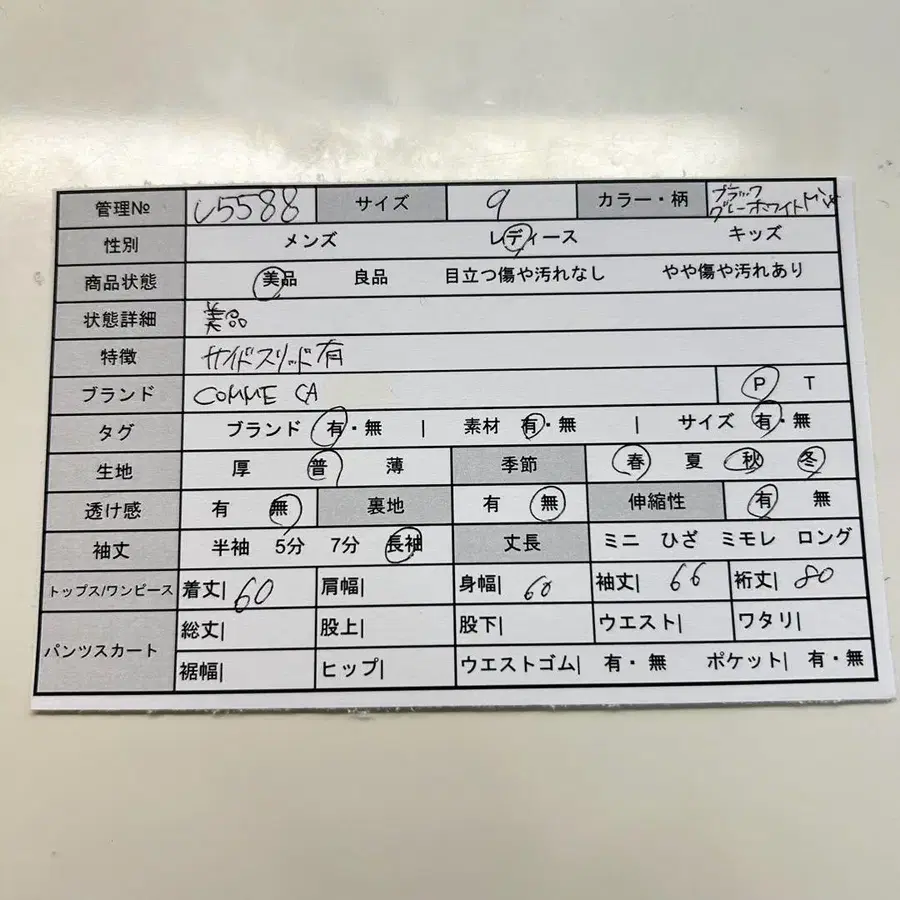 管理№ 5588 サイズ 9 カラー・柄 ブラック グレーホワイト
性別 メンズ レディース キッズ
商品状態 美品 良品 目立つ傷や汚れなし やや傷や汚れあり
状態詳細 美品
特徴 サイドスリッド有
ブランド COMME CA P T
タグ ブランド 有・無 | 素材 有・無 | サイズ 有・無
生地 厚 普 薄 季節 春 夏 秋 冬
透け感 有 無 裏地 有 無 伸縮性 有 無
袖丈 半袖 5分 7分 長袖 丈長 ミニ ひざ ミモレ ロング
トップス/ワンピース 着丈| 60 肩幅| 身幅| 60 袖丈| 66 裄丈| 80
パンツスカート 総丈| 股上| 股下| ウエスト| ワタリ|
裾幅| ヒップ| ウエストゴム| 有・無 ポケット| 有・無